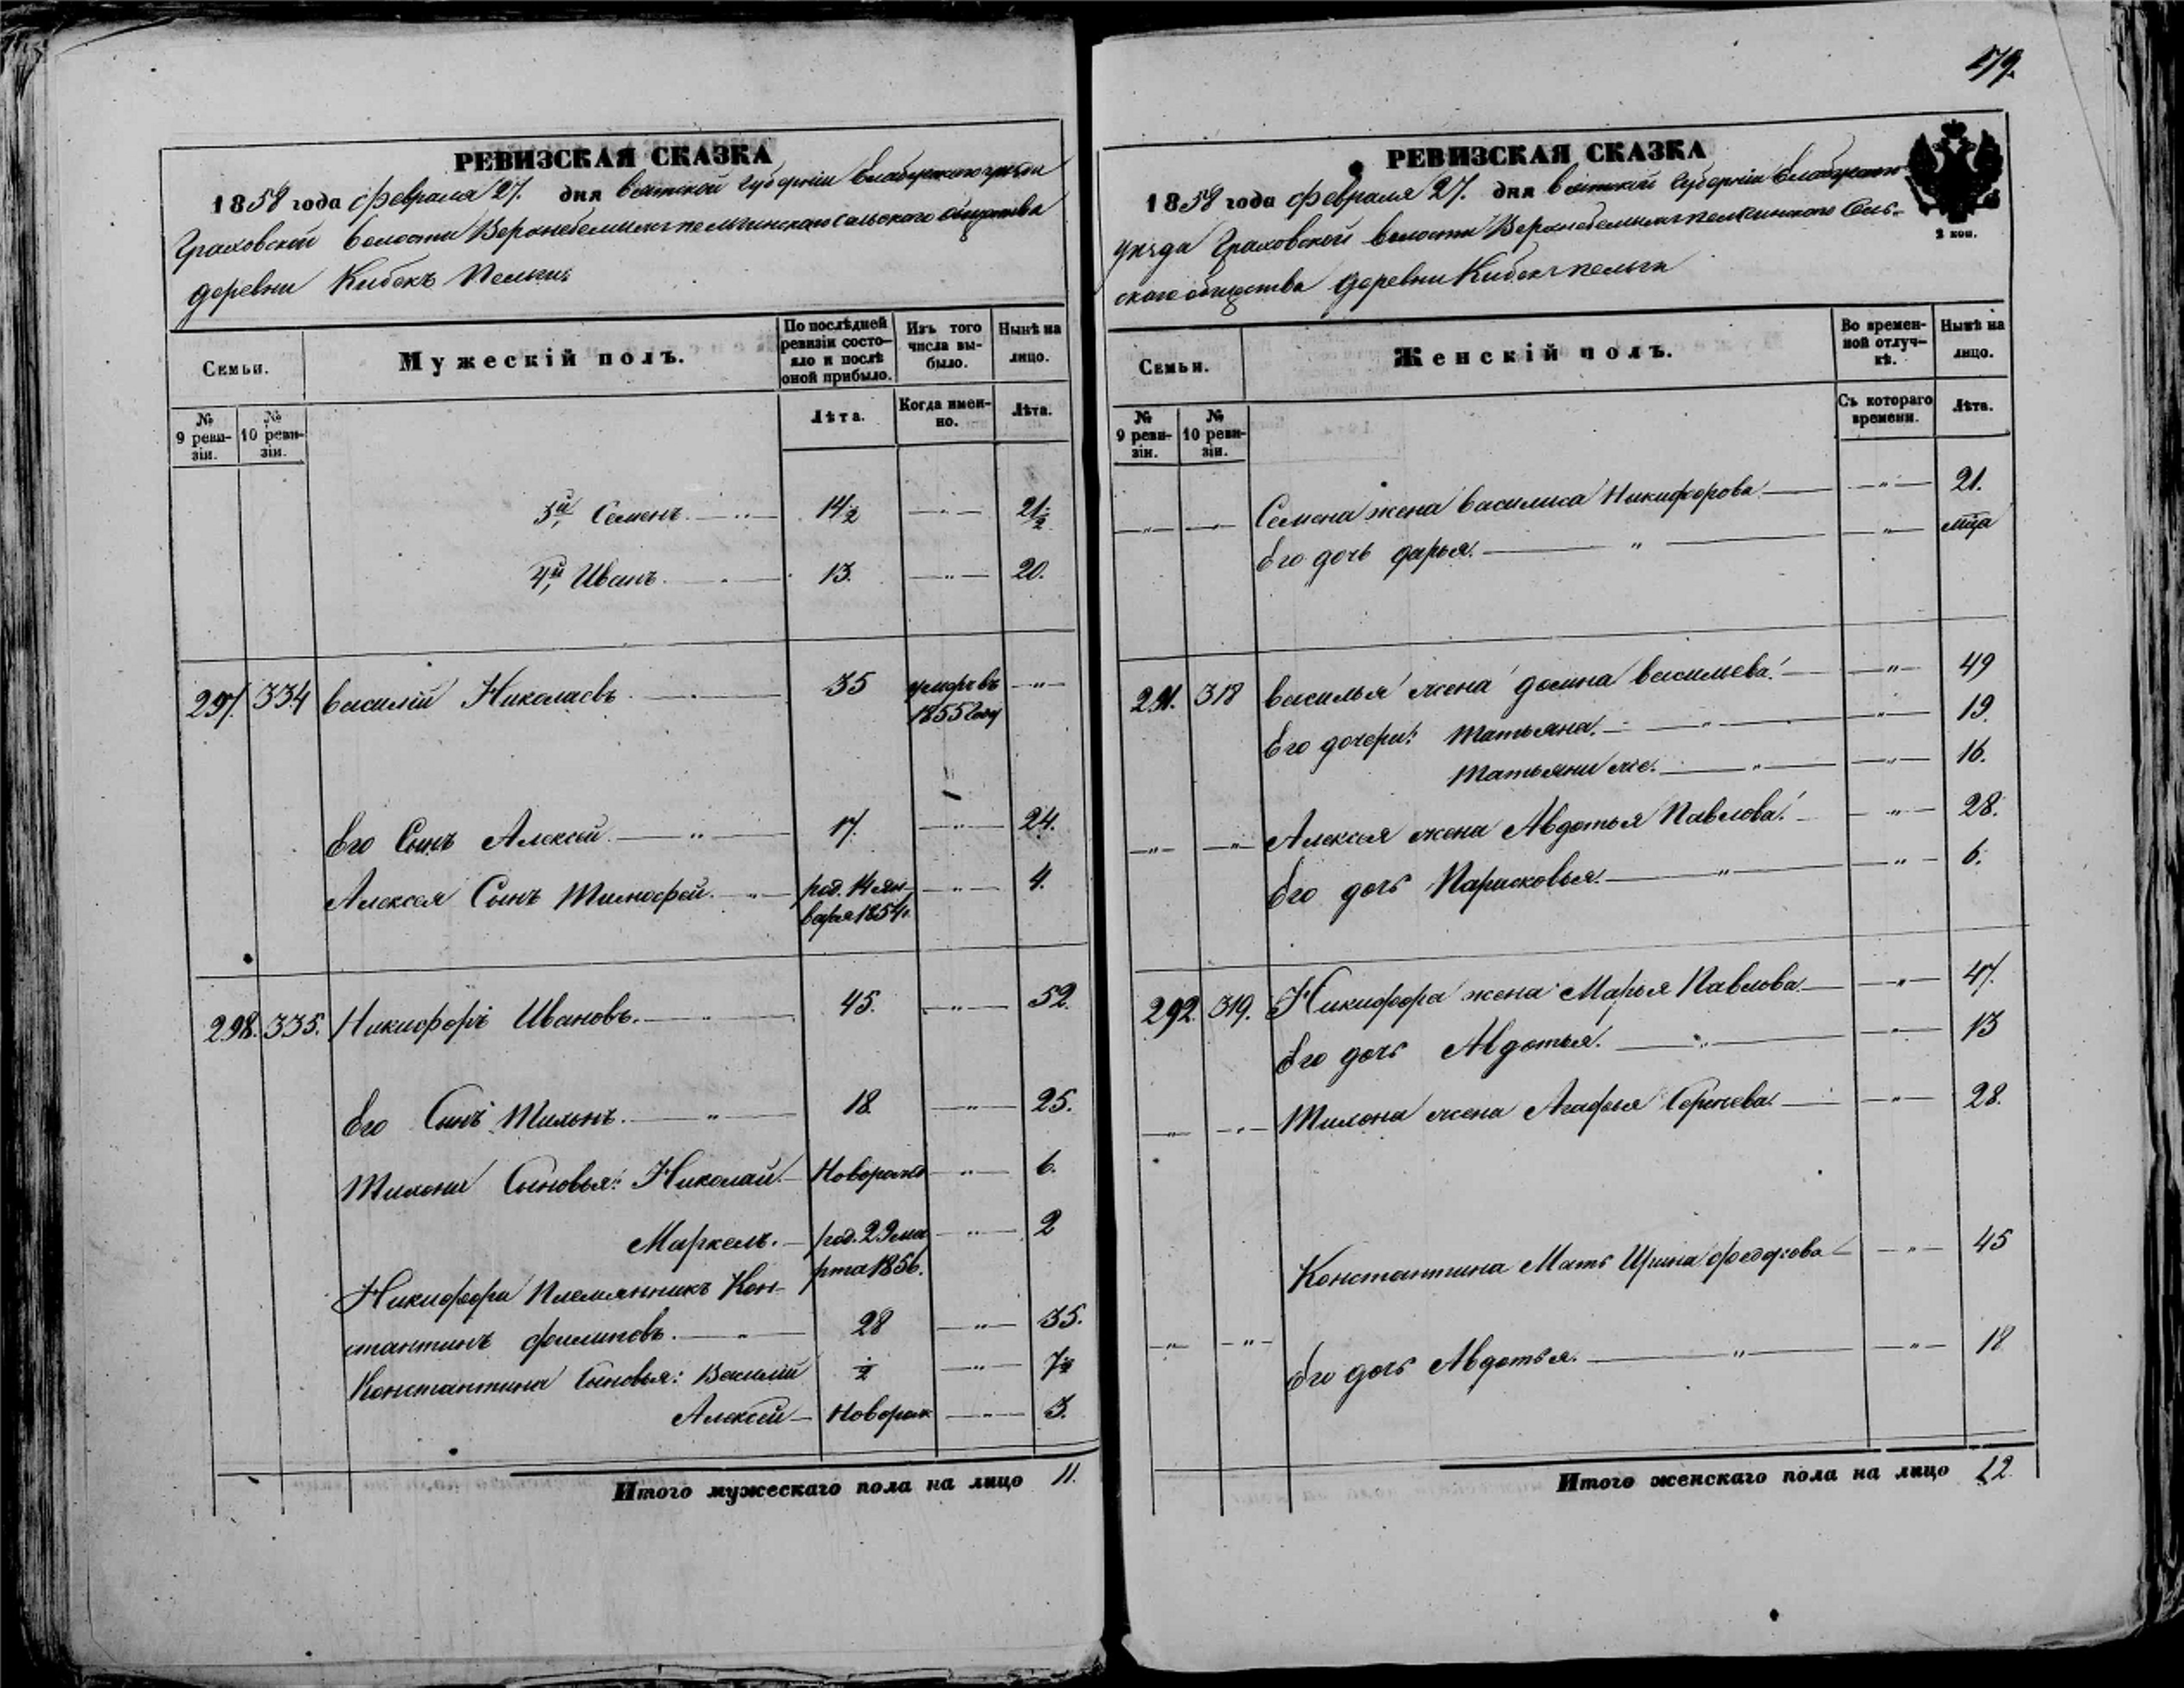 РЕВИЗСКАЯ СКАЗКА
1858 года Февраля 27. дня Вятской Губерніи Елабужскаго уѣзда
Граховской Волости сельскаго общества
деревни Кибекъ Пельги
Семьи.
Мужескій полъ.
По послѣдней ревизіи состояло и послѣ оной прибыло.
Изъ того числа выбыло.
Нынѣ на лицо.
№ 9 ревизіи.
№ 10 ревизіи.
Лѣта.
Когда именно.
Лѣта.
3й Семенъ. — „ — 14½ — „ — 21½
4й Иванъ. — „ — 13. — „ — 20.
297. 334 Василій Николаевъ — „ — 35 умеръ въ — „ —
1855 году
Его Сынъ Алексей — „ — 17. — „ — 24.
Алексея Сынъ Тимофей. — „ — род. 14 ян- — „ — 4.
варя 1854г.
298. 335. Никифоръ Ивановъ. — „ — 45. — „ — 52.
Его Сынъ Тихонъ. — „ — 18 — „ — 25.
Тихона Сыновья: Николай. — Новорож — „ — 6.
Маркелъ. — род. 29 ма — „ — 2
рта 1856.
Никифора Племянникъ Кон-
стантинъ Филиповъ. — „ — 28 — „ — 35.
Константина Сыновья: Василий ½ — „ — 7½
Алексей — Новорож — „ — 3.
Итого мужескаго пола на лицо 11.
179.
РЕВИЗСКАЯ СКАЗКА
2 коп.
1858 года Февраля 27. дня Вятской Губерніи Елабужскаго
уезда Граховской Волости Сель-
скаго общества деревни Кибекъ пельги
Семьи.
Женскій полъ.
Во временной отлучкѣ.
Нынѣ на лицо.
№ 9 ревизіи.
№ 10 ревизіи.
Съ котораго времени.
Лѣта.
— „ — — „ — Семена жена Василиса Никифорова — — „ — 21.
Его дочь Дарья. — „ — — „ — мц̃а
291. 318 Василья жена Домна Васильева. — — „ — 49
Его дочери: Татьяна. — „ — — „ — 19.
Татьяни же. — „ — — „ — 16.
— „ — — „ — Алексея жена Авдотья Павлова. — — „ — 28.
Его дочь Парасковья. — „ — — „ — 6.
292. 319. Никифора жена Марья Павлова. — — „ — 47.
Его дочь Авдотья. — „ — — „ — 13
— „ — — „ — Тихона жена Агафья Сергеева. — — „ — 28.
Константина Мать Ирина Федорова — — „ — 45
— „ — — „ — Его дочь Авдотья. — „ — — „ — 18
Итого женскаго пола на лицо 12.